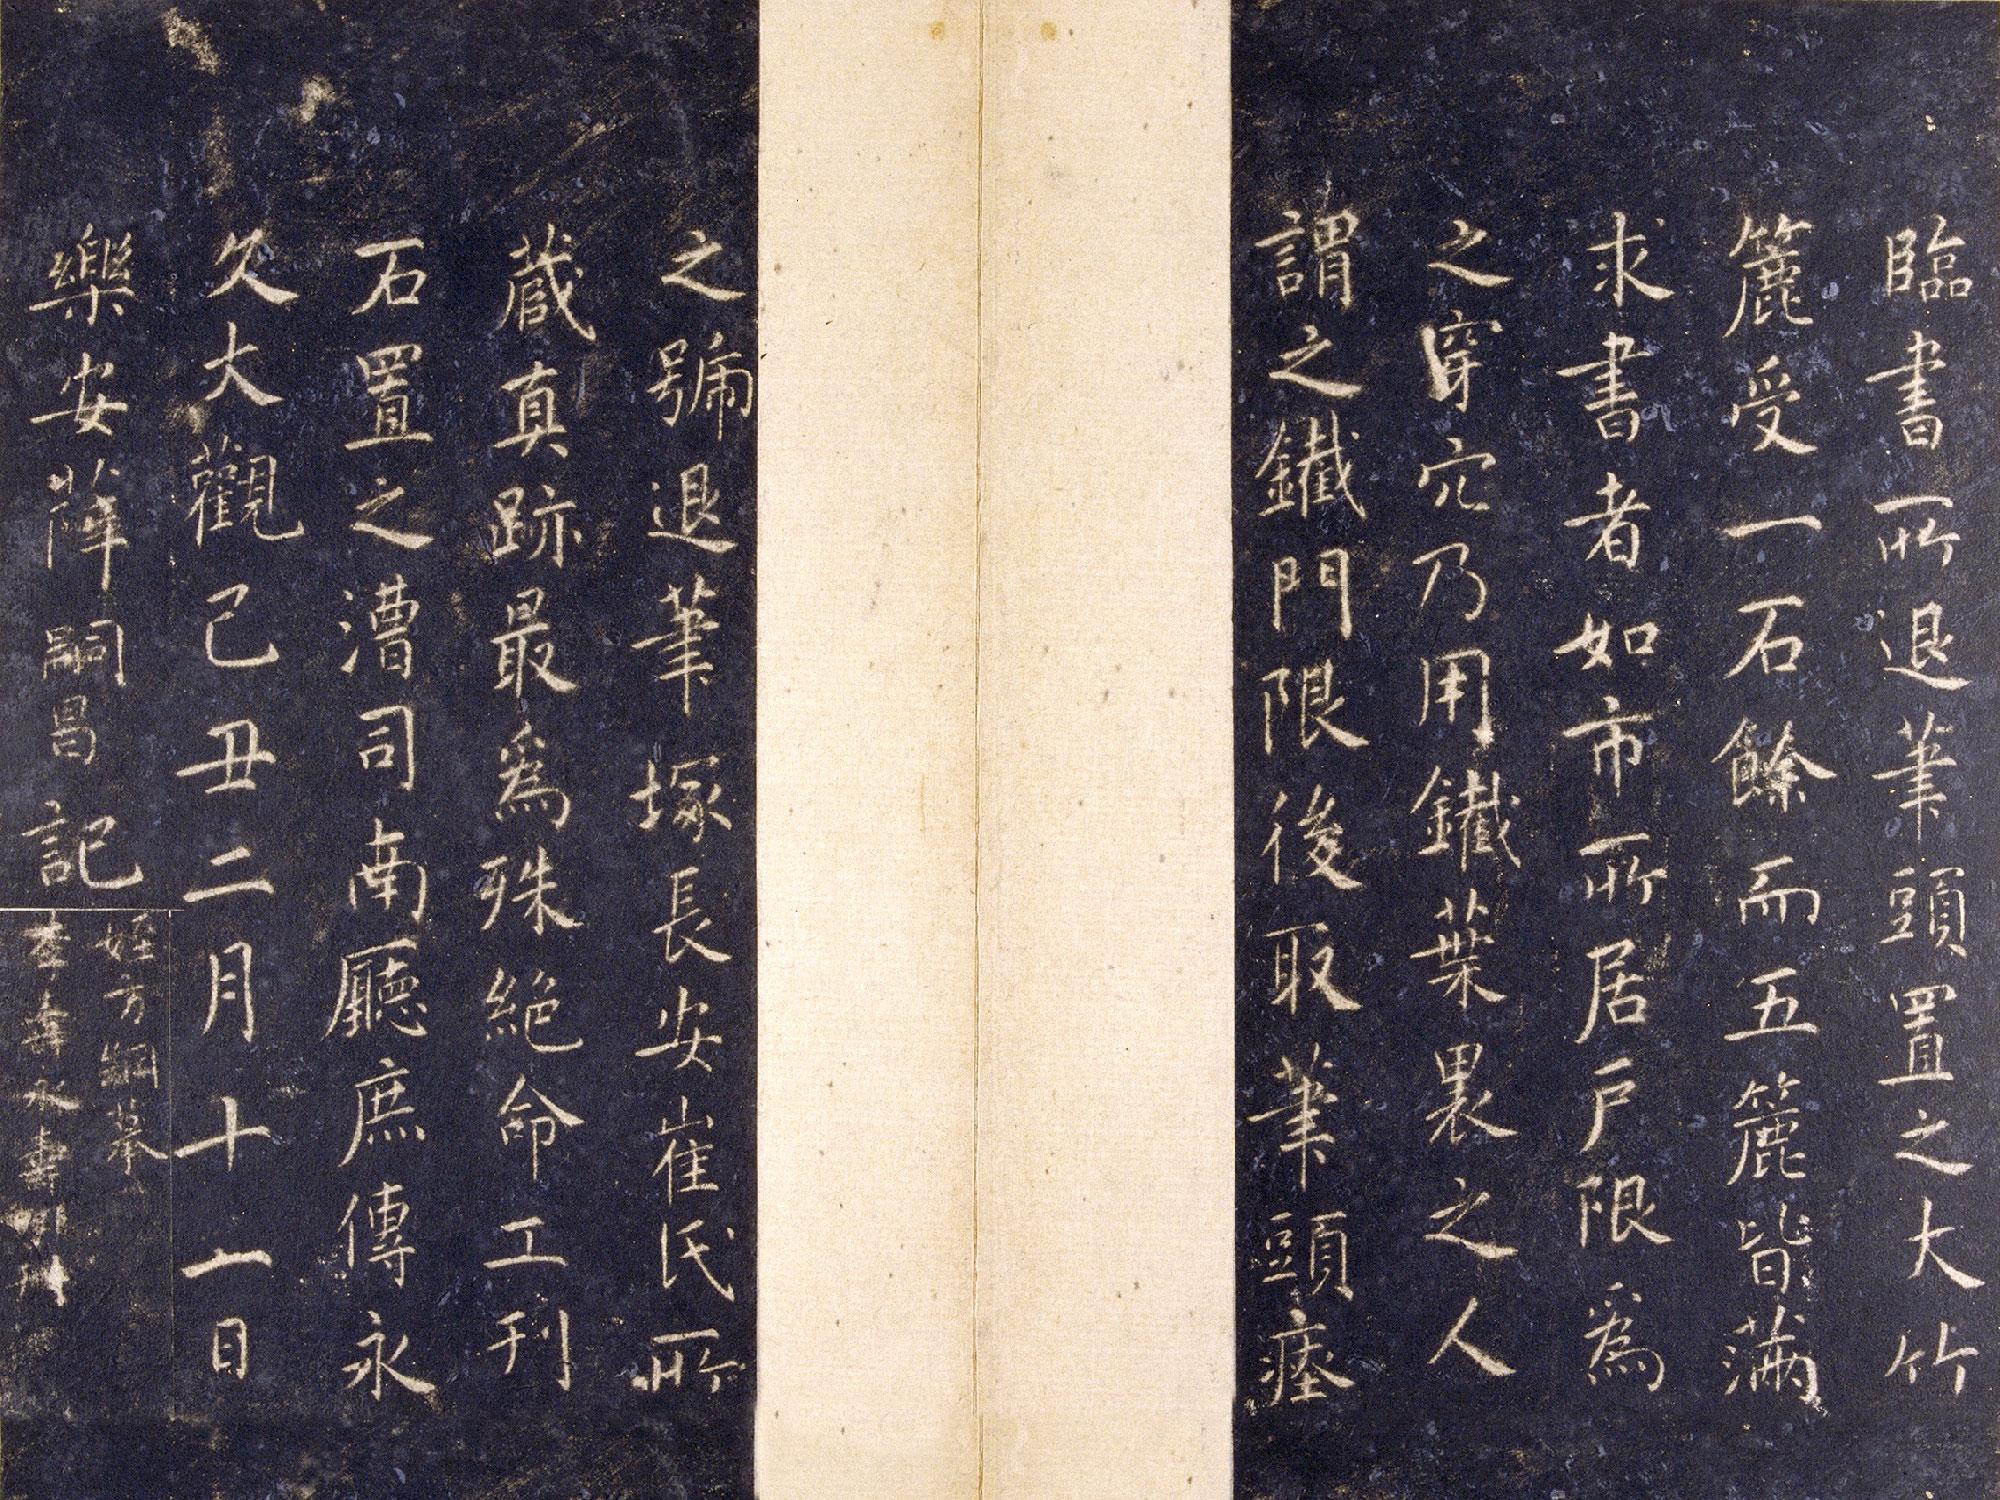 臨書所退筆頭置之大竹
簏受一石餘而五簏皆滿
求書者如市所居戶限爲
之穿穴乃用鐵葉裹之人
謂之鐵門限後取筆頭瘞
之號退筆塚長安崔氏所
蔵真跡最爲殊絕命工刊
石置之漕司南廳庶傳永
久大觀己丑二月十一日
樂安薛嗣昌記
姪方綱摹
李壽永壽明刊